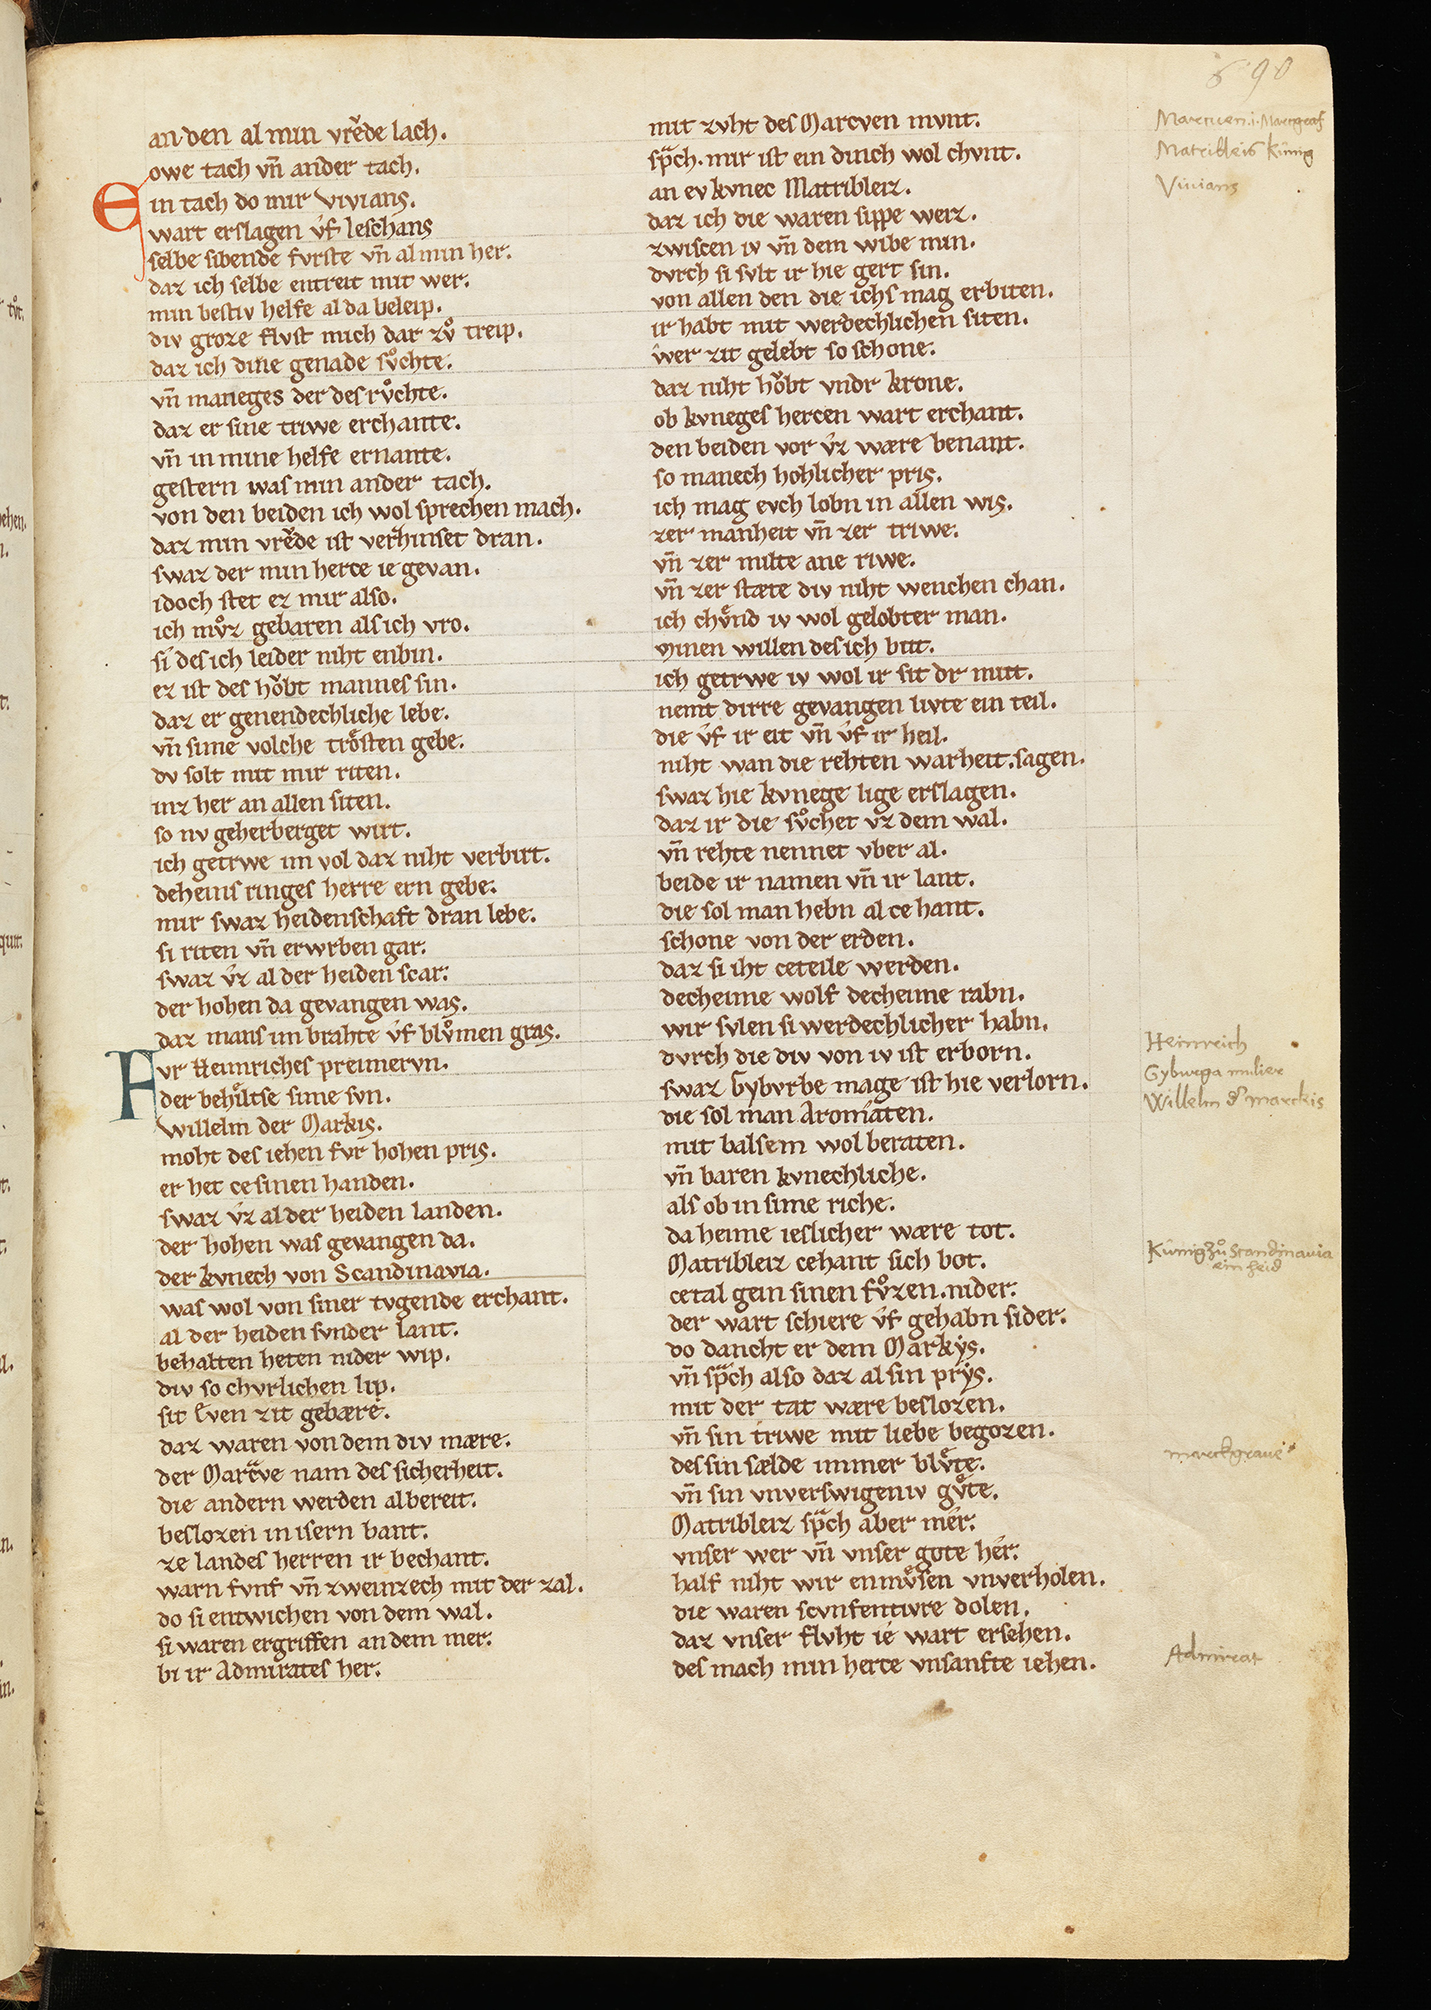 690
an den al min vrͤde lach.
owe tach vn̄ ander tach.
Ein tach do mir vivians.
wart erslagen v́f leschans
selbe sibende fvrste vn̄ al min her.
daz ich selbe entreit mit wer.
min bestiv helfe al da beleip.
div groze flvst mich dar zvͦ treip.
daz ich dine genade svͦchte.
vn̄ maneges der des rvͦchte.
daz er sine triwe erchante.
vn̄ in mine helfe ernante.
gestern was min ander tach.
von den beiden ich wol sprechen mach.
daz min vrͤde ist verhinset dran.
swaz der min herce ie gevan.
idoch stet ez mir also.
ich mvͦz gebaren als ich vro.
si des ich leider niht enbin.
ez ist des hoͮbt mannes sin.
daz er genendechliche lebe.
vn̄ sime volche troͤsten gebe.
dv solt mit mir riten.
inz her an allen siten.
so nv geherberget wirt.
ich getrwe im vol daz niht verbirt.
deheins ringes herre ern gebe.
mir swaz heidenschaft dran lebe.
si riten vn̄ erwrben gar.
swaz v́z al der heiden scar.
der hohen da gevangen was.
daz mans im brahte v́f blvͦmen gras.
Fvr Heimriches preimervn.
der behvͤltse sime svn.
Willelm der Markis.
moht des iehen fvr hohen pris.
er het ce sinen handen.
swaz v́z al der heiden landen.
der hohen was gevangen da.
der kvnech von Scandinavia.
was wol von siner tvgende erchant.
al der heiden svnder lant.
behalten heten nider wip.
div so chvrlichen lip.
sit Even zit gebære.
daz waren von dem div mære.
der Marcͣve nam des sicherheit.
die andern werden al bereit.
beslozen in isern bant.
ze landes herren ir bechant.
warn fvnf vn̄ zweinzech mit der zal.
do si entwichen von dem wal.
si waren ergriffen an dem mer.
bi ir Admirates her.
mit zvht des Marcven mvnt.
spͣch. mir ist ein dinch wol chvnt.
an ev kvnec Matribleiz.
daz ich die waren sippe weiz.
zwiscen iv vn̄ dem wibe min.
dvrch si svlt ir hie gert sin.
von allen den die ichs mag erbiten.
ir habt mit werdechlichen siten.
iwer zit gelebt so schone.
daz niht hoͮbt vndr krone.
ob kvneges hercen wart erchant.
den beiden vor v́z wære benant.
so manech hohlicher pris.
ich mag evch lobn in allen wis.
zer manheit vn̄ zer triwe.
vn̄ zer milte ane riwe.
vn̄ zer stæte div niht wenchen chan.
ich chvͤnd iv wol gelobter man.
minen willen des ich bitt.
ich getrwe iv wol ir sit dr mitt.
nemt dirre gevangen livte ein teil.
die v́f ir eit vn̄ v́f ir heil.
niht wan die rehten warheit. sagen.
swaz hie kvnege lige erslagen.
daz ir die svͦchet vz dem wal.
vn̄ rehte nennet vber al.
beide ir namen vn̄ ir lant.
die sol man hebn al ce hant.
schone von der erden.
daz si iht ceteile werden.
decheime wolf decheime rabn.
wir svlen si werdechlicher habn.
dvrch die div von iv ist erborn.
swaz Gybvrbe mage ist hie verlorn.
die sol man Aromaten.
mit balsem wol beraten.
vn̄ baren kvnechliche.
als ob in sime riche.
da heime ieslicher wære tot.
Matribleiz cehant sich bot.
cetal gein sinen fvͦzen. nider.
der wart schiere v́f gehabn sider.
do dancht er dem Markẏs.
vn̄ spͣch also daz al sin prẏs.
mit der tat wære beslozen.
vn̄ sin triwe mit liebe begozen.
des sin sælde immer blvͤte.
vn̄ sin vnverswigeniv gvͤte.
Matribleiz spͣch aber mer.
vnser wer vn̄ vnser gote her.
half niht wir enmvͤsen vnverholen.
die waren scvnfentivre dolen.
daz vnser flvht ie wart ersehen.
des mach min herce vnsanfte iehen.
Marcuen .i. Marcgraf
Matribleis Künig
Vivians
Heinreich
Gyburga mulier
Willelm dͤ marckis
Künig Zuͦ Scandinavia
ein heid
marckgrave
Admirat